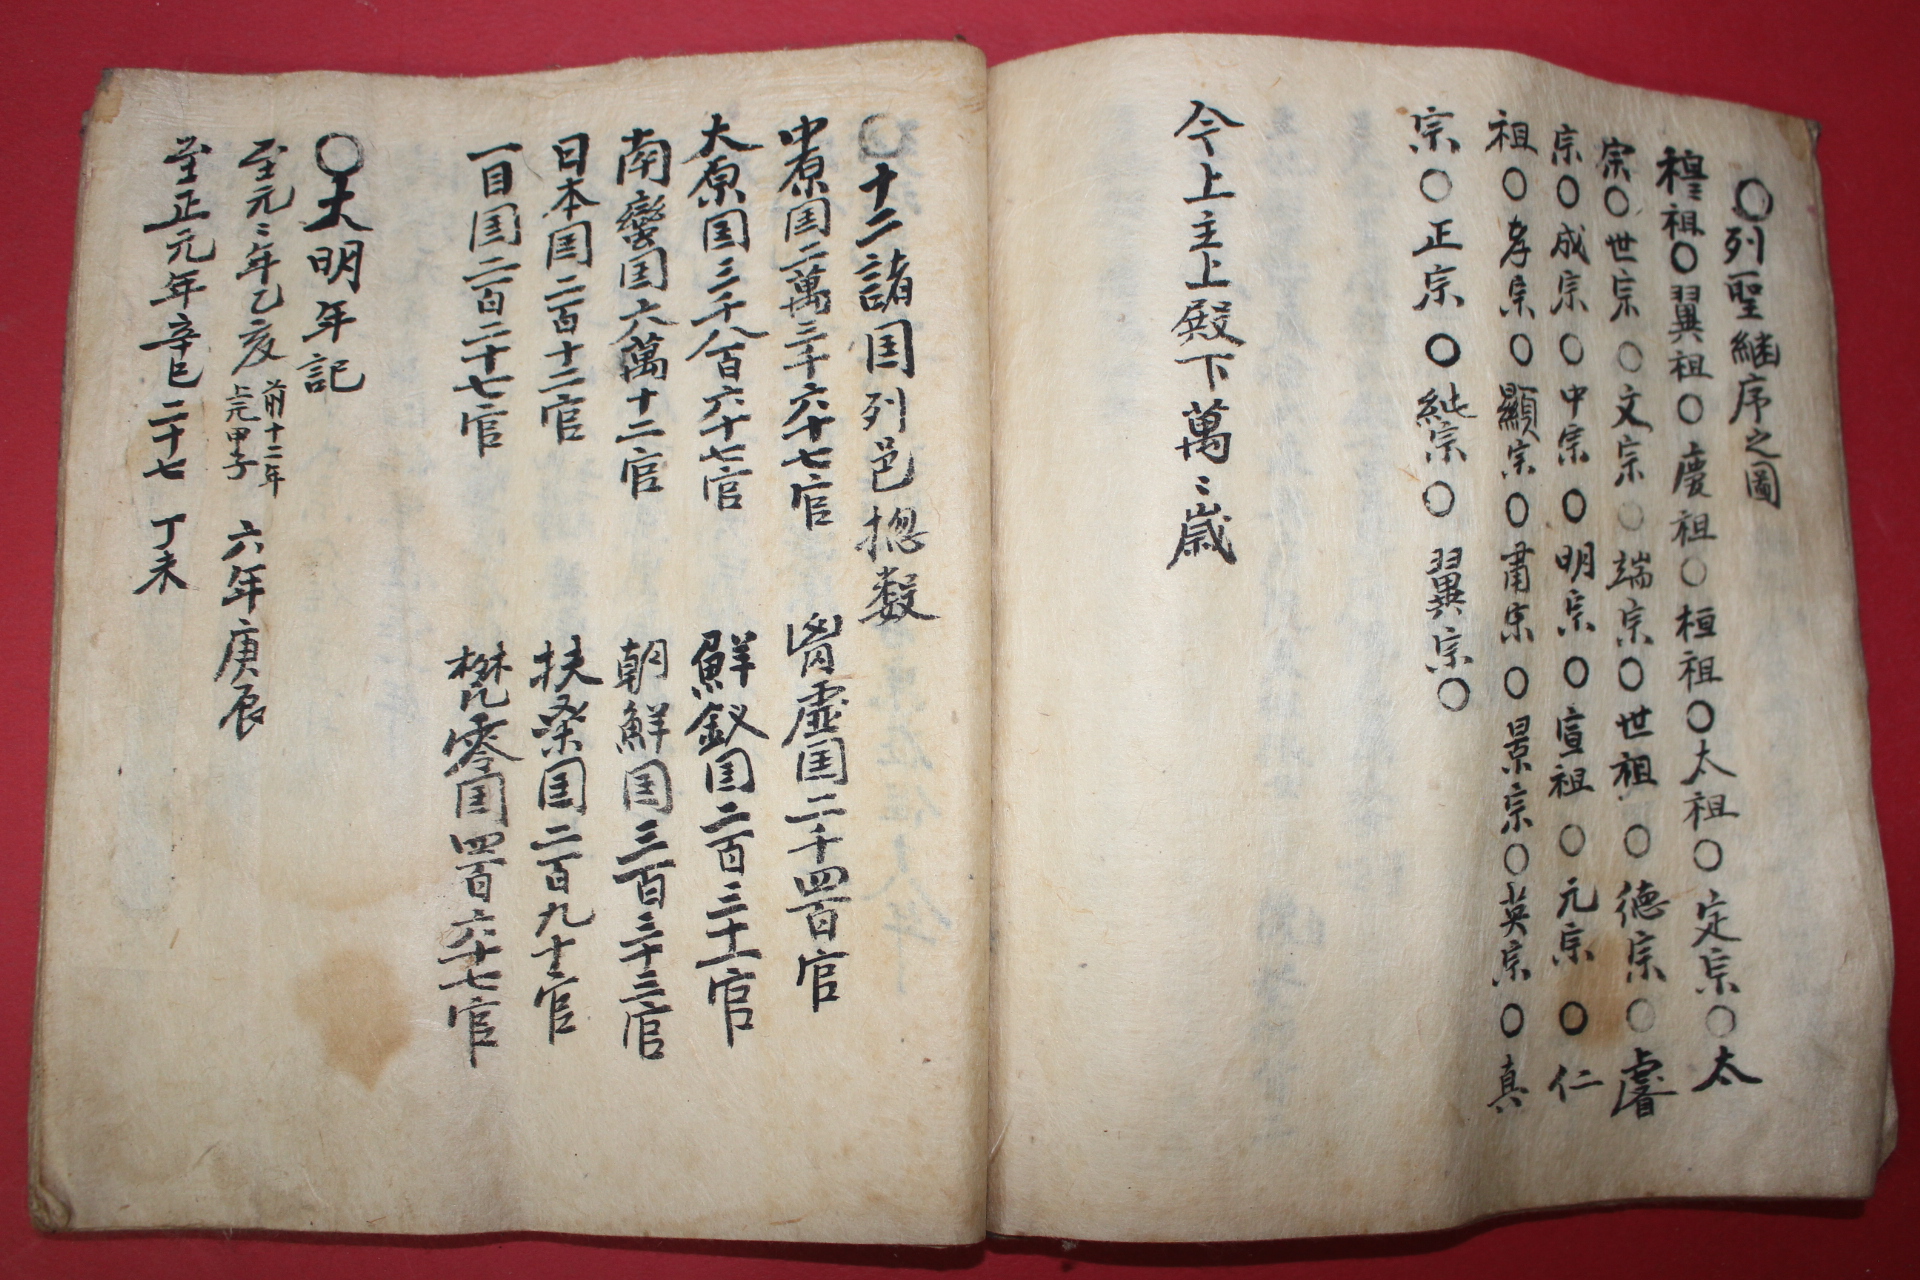 ○列聖継序之圖
穆祖○翼祖○慶祖○桓祖○太祖○定宗○太
宗○世宗○文宗○端宗○世祖○德宗○睿
宗○成宗○中宗○明宗○宣祖○元宗○仁
祖○孝宗○顯宗○肅宗○景宗○英宗○真
宗○正宗○純宗○翼宗○
今上主上殿下萬〻歲
○十二諸国列邑摠数
中原国二萬三千六十七官 虛国二千四百官
大原国三千八百六十七官 鮮釵国二百三十一官
南蠻国六萬十二官 朝鮮国三百三十三官
日本国二百十二官 扶桒国二百九十二官
一目国二百二十七官 零国四百六十七官
○大明年記
至元〻年乙亥 前十二年 上元甲子 六年庚辰
至正元年辛巳 二十七 丁未